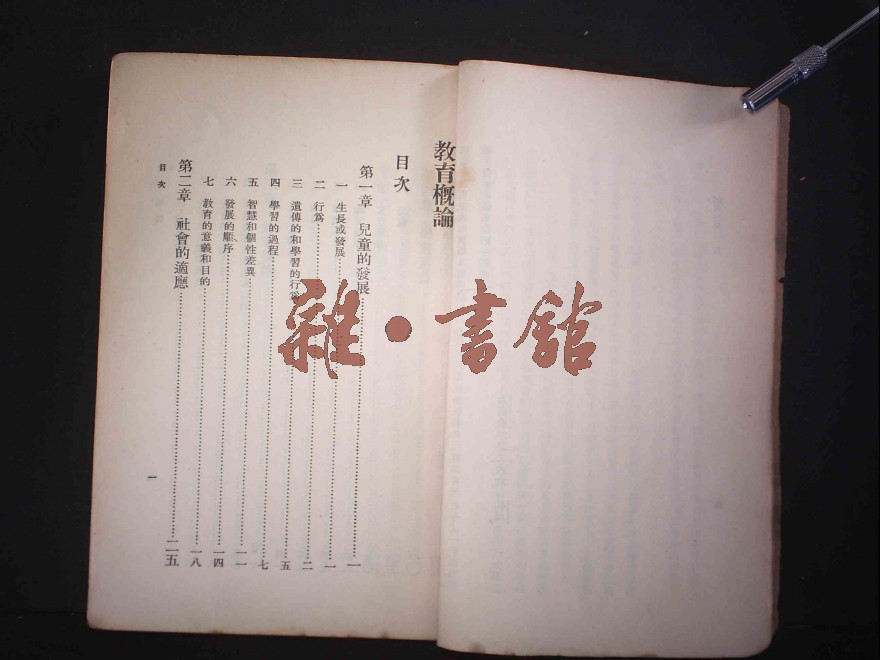 教育概論
目次
第一章 兒童的發展……一
一 生長或發展……一
二 行為……二
三 遺傳的和學習的行為……五
四 學習的過程……七
五 智慧和個性差異……一一
六 發展的順序……一四
七 教育的意義和目的……一八
第二章 社會的適應……二五
目次
一
雜·書館